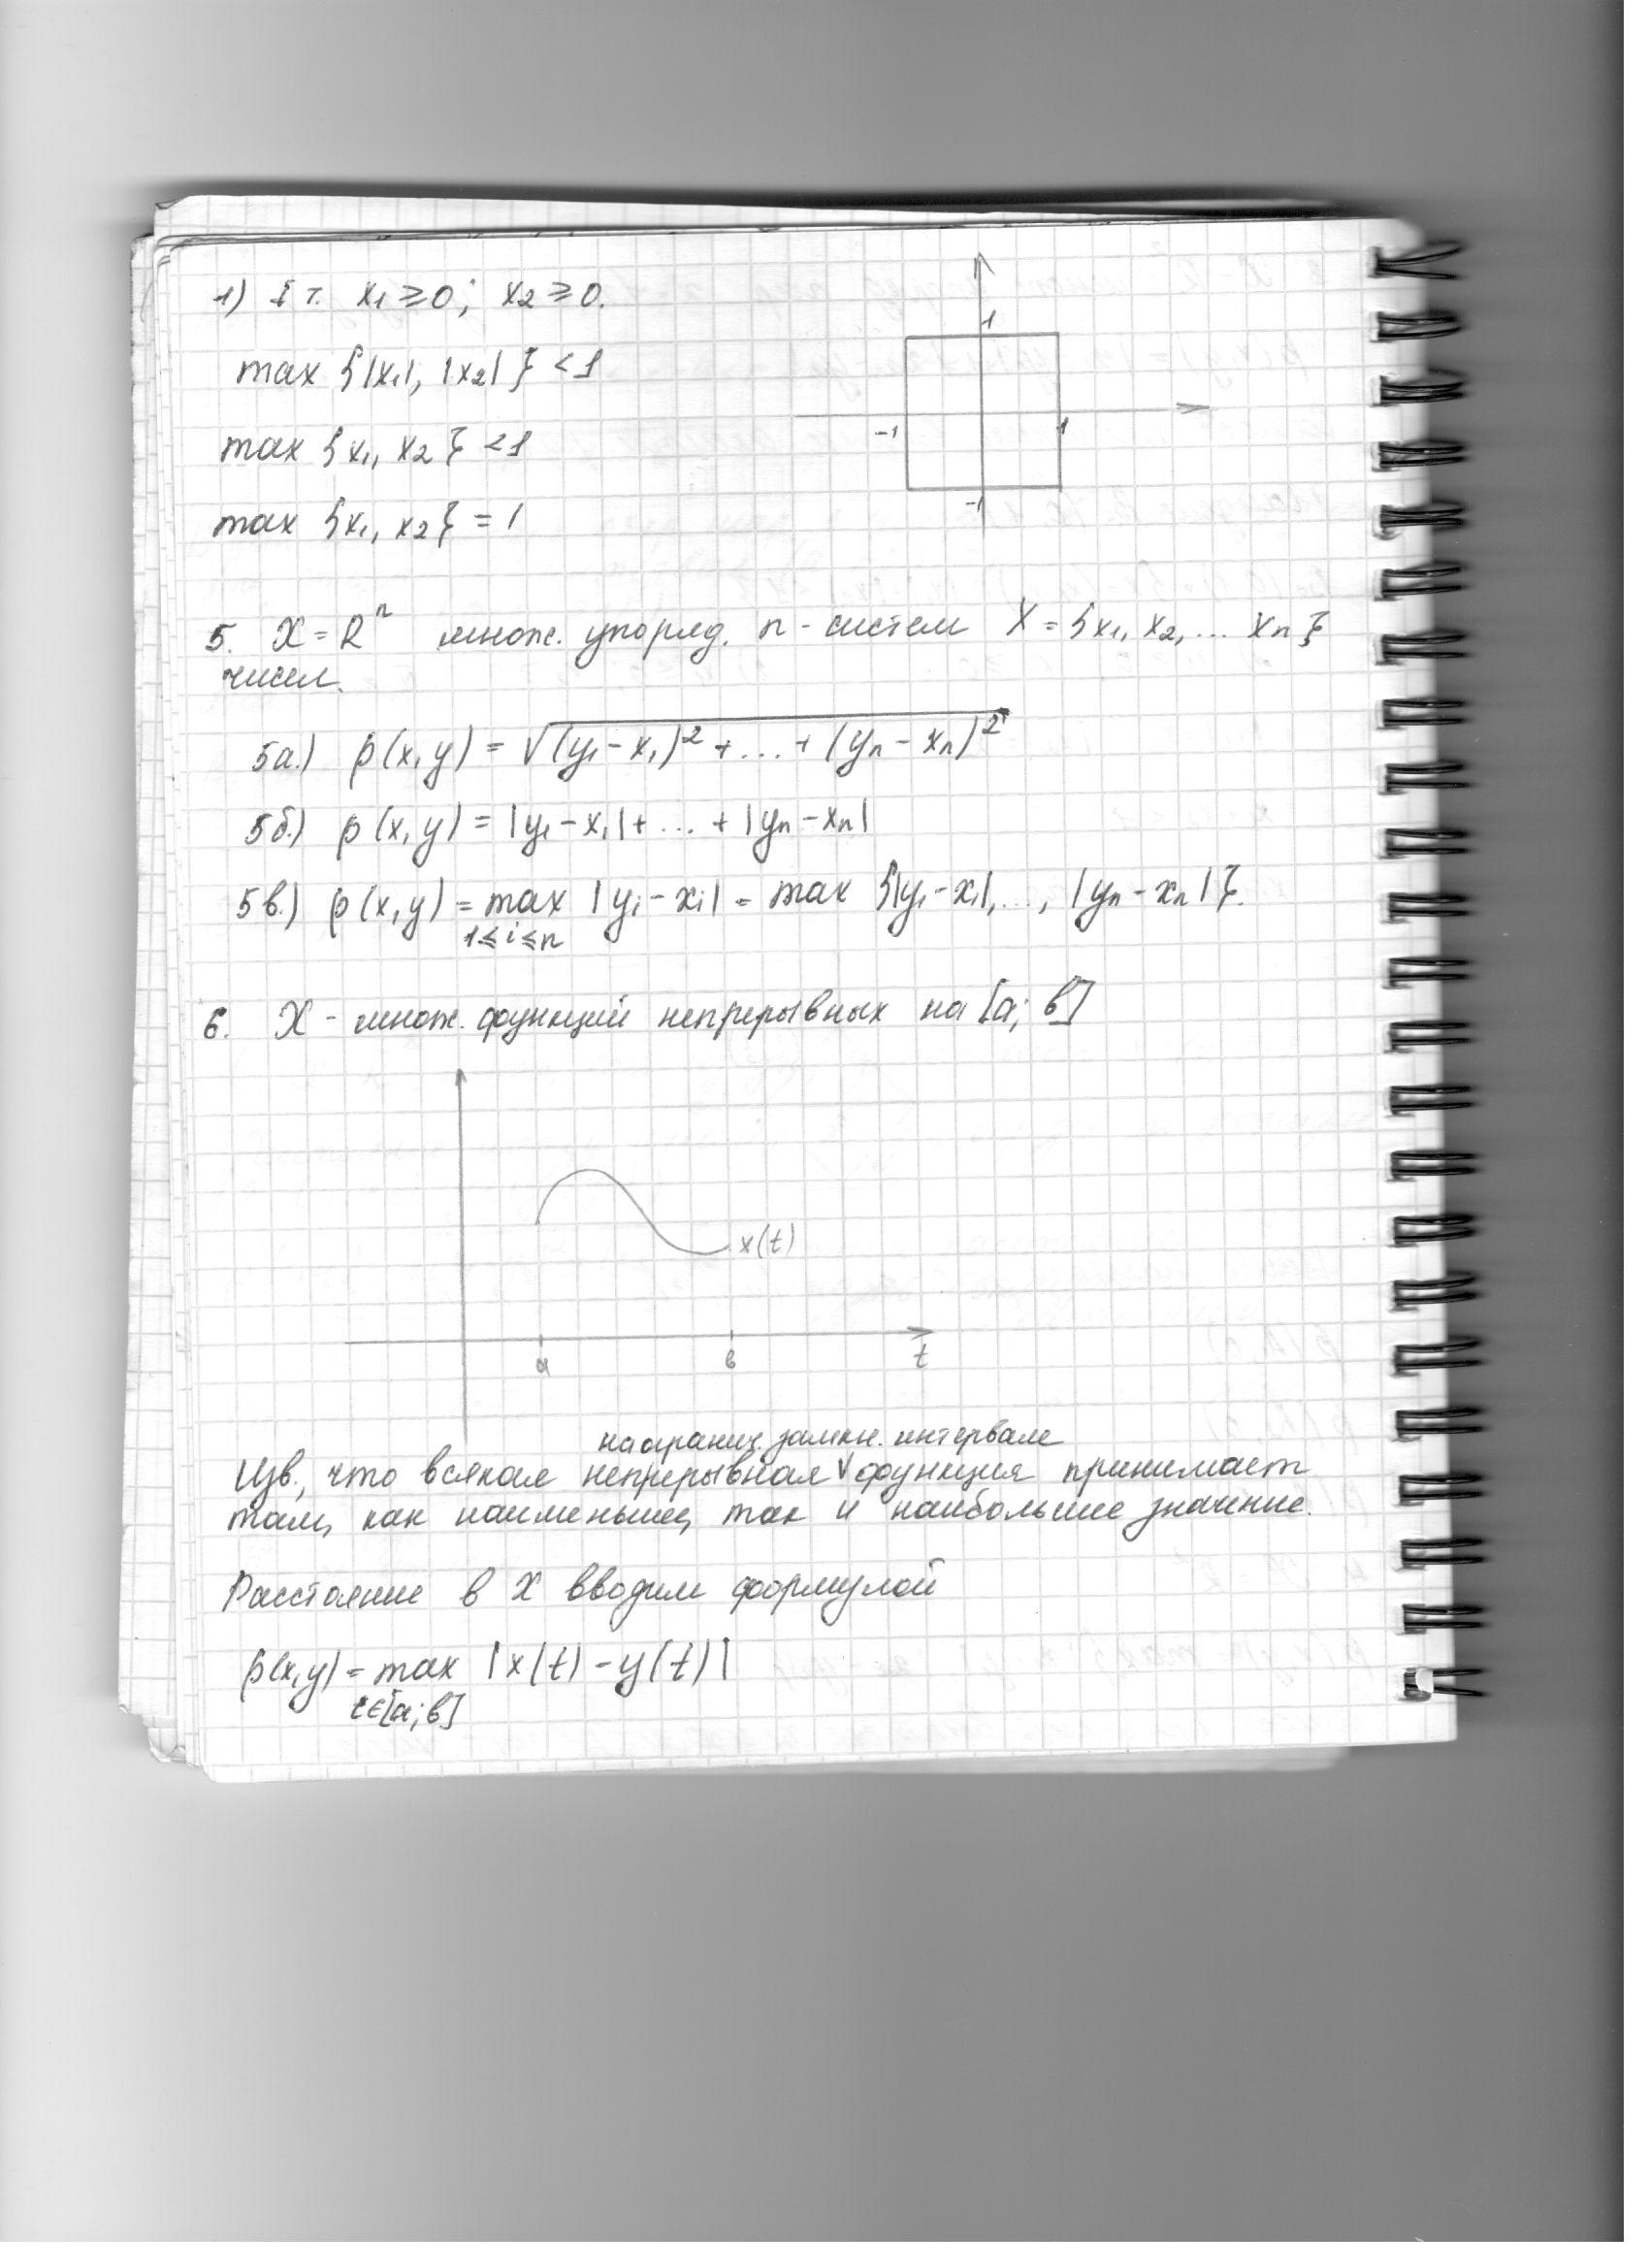 1) I ч. x₁ ≥ 0; x₂ ≥ 0.
max {|x₁|, |x₂|} < 1
max {x₁, x₂} < 1
max {x₁, x₂} = 1
1
-1
1
-1
5. X = Rⁿ множ. упоряд. n - систем X = {x₁, x₂, ... xₙ}
чисел.
5а.) ρ(x, y) = √(y₁ - x₁)² + ... + (yₙ - xₙ)²
5б.) ρ(x, y) = |y₁ - x₁| + ... + |yₙ - xₙ|
5в.) ρ(x, y) = max |yᵢ - xᵢ| = max {|y₁ - x₁|, ..., |yₙ - xₙ|}.
1≤i≤n
6. X - множ. функций непрерывных на [a; в]
x(t)
a в t
на огранич. замкн. интервале
Изв., что всякая непрерывная V функция принимает
там, как наименьшее, так и наибольшее значение.
Расстояние в X вводим формулой
ρ(x, y) = max |x(t) - y(t)|
t∈[a; в]